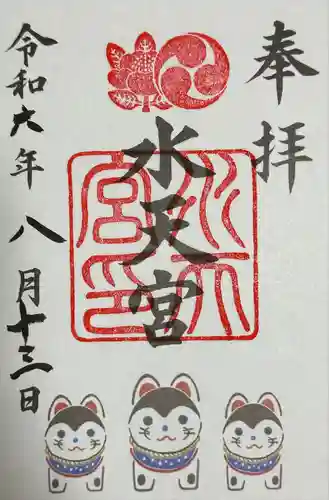 奉拝
水天宮
令和六年八月十三日